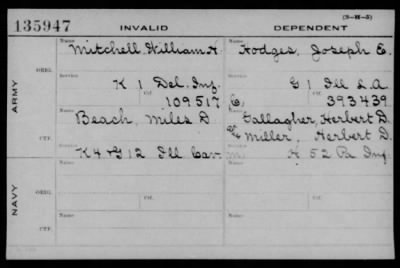 (3-H-5)
135947 INVALID DEPENDENT
Name Name
Mitchell, William H. Hodges, Joseph E.
ORIG.
Service Service
K 1 Del. Inf. G 1 Ill L.A.
ARMY
Ctf. Ctf.
109517 C, 393439
Name
Beach, Miles D Gallagher, Herbert D.
Miller, Herbert D.
CTF.
Service
K 4 & G 12 Ill Cav. M. H 52 Pa Inf.
Name Name
ORIG.
NAVY
Ctf. Ctf.
Name Name
CTF.